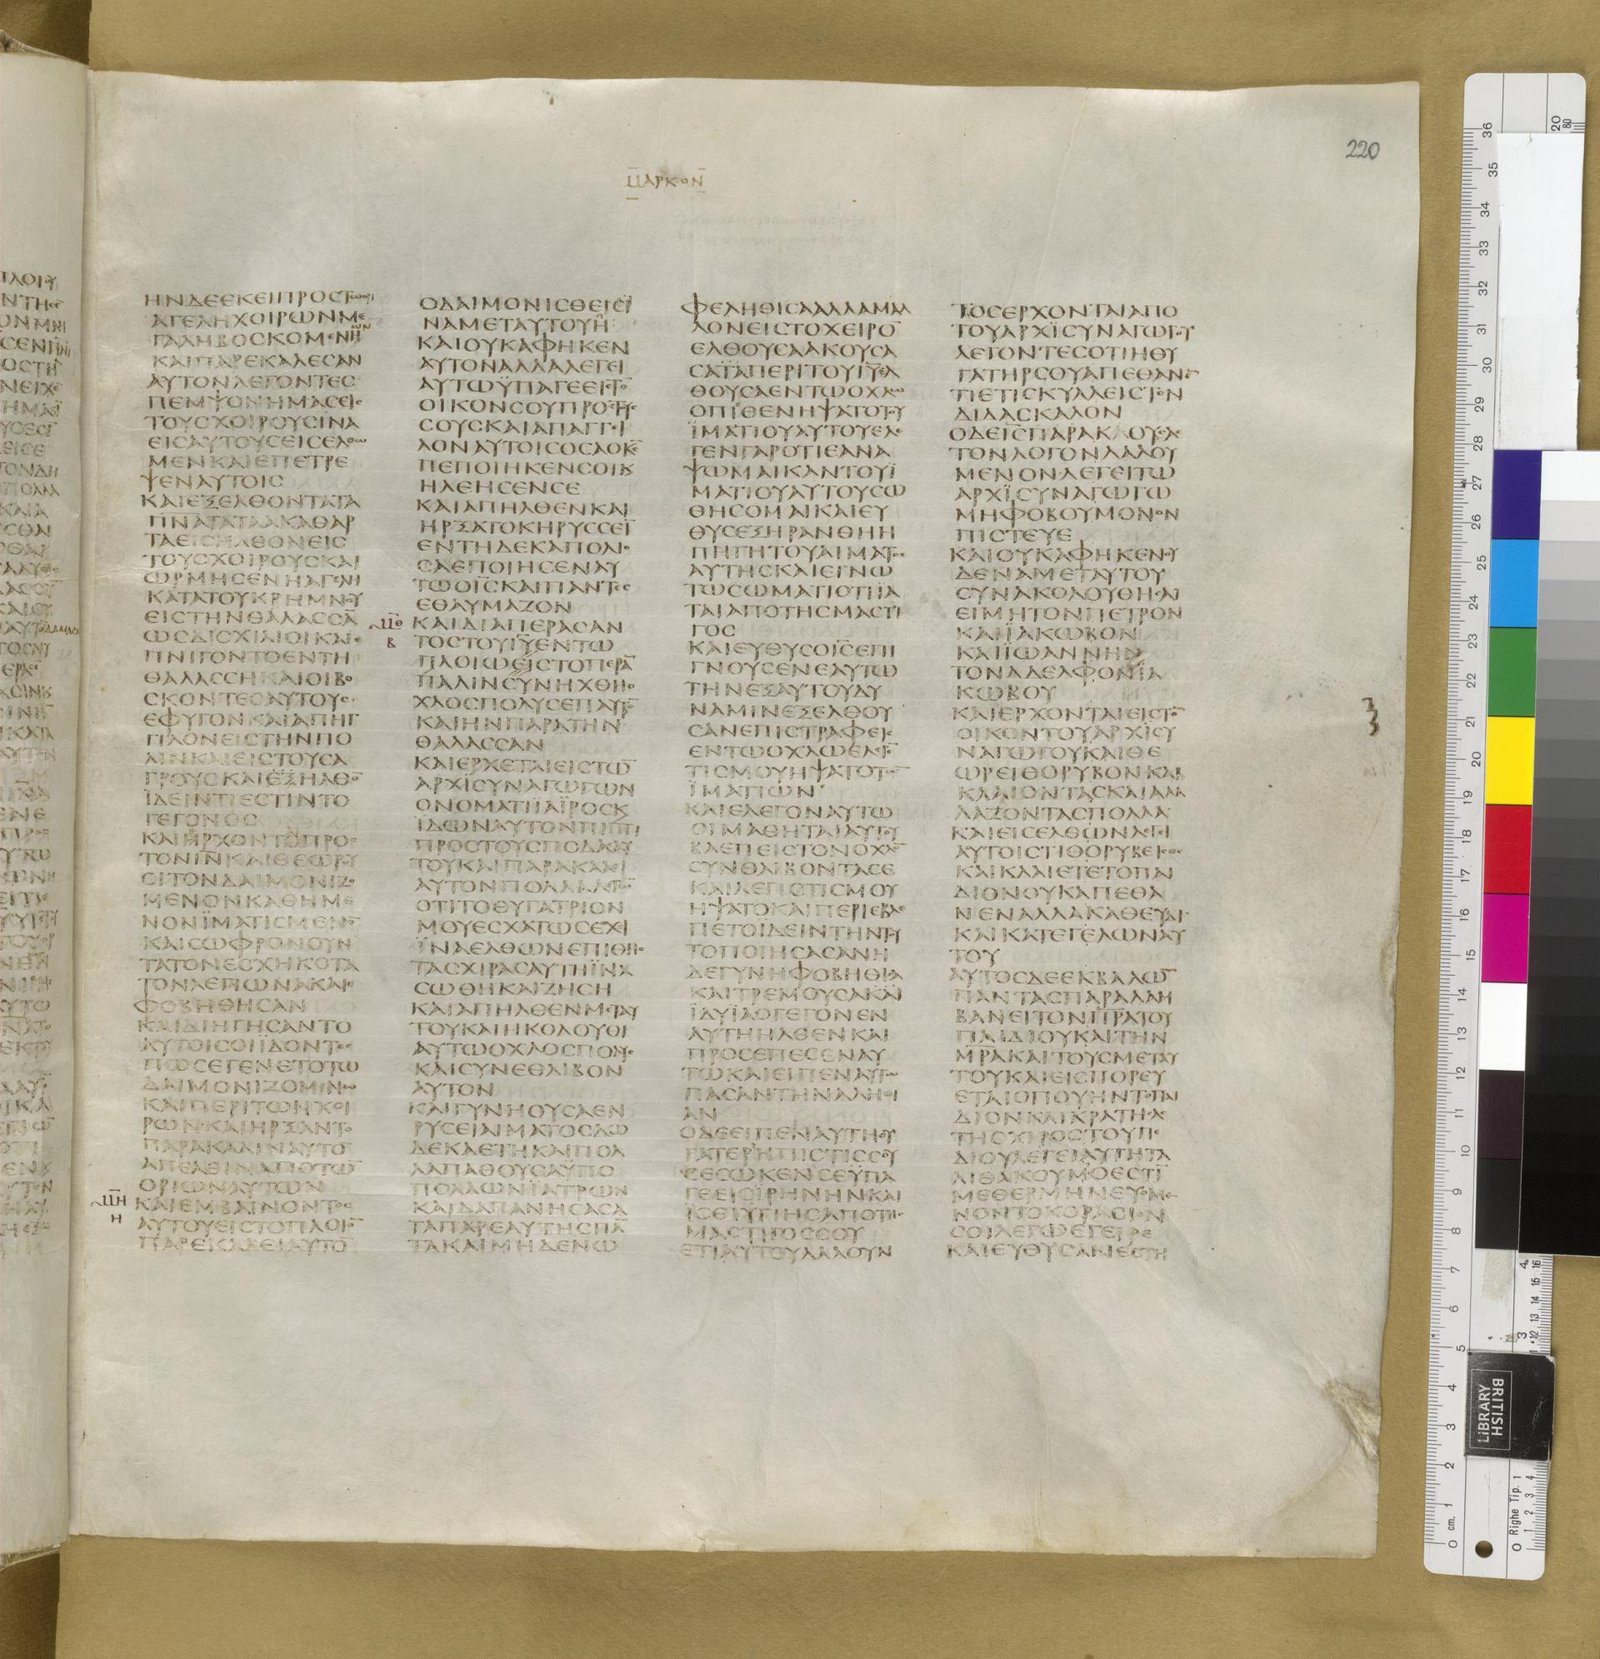 220
ΜΑΡΚΟΝ
ΗΝΔΕΕΚΕΙΠΡΟΣΤΩΟΡΙ
ΑΓΕΛΗΧΟΙΡΩΝΜΕ
ΓΑΛΗΒΟΣΚΟΜΕΝΗ
ΚΑΙΠΑΡΕΚΑΛΕΣΑΝ
ΑΥΤΟΝΛΕΓΟΝΤΕΣ
ΠΕΜΨΟΝΗΜΑΣΕΙΣ
ΤΟΥΣΧΟΙΡΟΥΣΙΝΑ
ΕΙΣΑΥΤΟΥΣΕΙΣΕΛΘΩ
ΜΕΝΚΑΙΕΠΕΤΡΕ
ΨΕΝΑΥΤΟΙΣ
ΚΑΙΕΞΕΛΘΟΝΤΑΤΑ
ΠΝΑΤΑΤΑΑΚΑΘΑΡ
ΤΑΕΙΣΗΛΘΟΝΕΙΣ
ΤΟΥΣΧΟΙΡΟΥΣΚΑΙ
ΩΡΜΗΣΕΝΗΑΓΕΛΗ
ΚΑΤΑΤΟΥΚΡΗΜΝΟΥ
ΕΙΣΤΗΝΘΑΛΑΣΣΑ̅
ΩΣΔΙΣΧΙΛΙΟΙΚΑΙΕ
ΠΝΙΓΟΝΤΟΕΝΤΗ
ΘΑΛΑΣΣΗΚΑΙΟΙΒΟ
ΣΚΟΝΤΕΣΑΥΤΟΥΣ
ΕΦΥΓΟΝΚΑΙΑΠΗΓ
ΓΙΛΟΝΕΙΣΤΗΝΠΟ
ΛΙΝΚΑΙΕΙΣΤΟΥΣΑ
ΓΡΟΥΣΚΑΙΕΞΗΛΘΟ̅
ΪΔΕΙΝΤΙΕΣΤΙΝΤΟ
ΓΕΓΟΝΟΣ
ΚΑΙΗΡΧΟΝΤΟΠΡΟΣ
ΤΟΝΙ̅Ν̅ΚΑΙΘΕΩΡΟΥ
ΣΙΤΟΝΔΑΙΜΟΝΙΖΟ
ΜΕΝΟΝΚΑΘΗΜΕ
ΝΟΝΪΜΑΤΙΣΜΕΝΟ̅
ΚΑΙΣΩΦΡΟΝΟΥΝ
ΤΑΤΟΝΕΣΧΗΚΟΤΑ
ΤΟΝΛΕΓΙΩΝΑΚΑΙΕ
ΦΟΒΗΘΗΣΑΝ
ΚΑΙΔΙΗΓΗΣΑΝΤΟ
ΑΥΤΟΙΣΟΙΙΔΟΝΤΕΣ
ΠΩΣΕΓΕΝΕΤΟΤΩ
ΔΑΙΜΟΝΙΖΟΜΕΝΩ
ΚΑΙΠΕΡΙΤΩΝΧΟΙ
ΡΩΝΚΑΙΗΡΞΑΝΤΟ
ΠΑΡΑΚΑΛΙΝΑΥΤΟ̅
ΑΠΕΛΘΙΝΑΠΟΤΩ̅
ΟΡΙΩΝΑΥΤΩΝ
ΜΗ
Η
ΚΑΙΕΜΒΑΙΝΟΝΤΟΣ
ΑΥΤΟΥΕΙΣΤΟΠΛΟΙΟ̅
ΠΑΡΕΚΑΛΕΙΑΥΤΟ̅
ΟΔΑΙΜΟΝΙΣΘΕΙΣΪ
ΝΑΜΕΤΑΥΤΟΥΗ
ΚΑΙΟΥΚΑΦΗΚΕΝ
ΑΥΤΟΝΑΛΛΑΛΕΓΕΙ
ΑΥΤΩΫΠΑΓΕΕΙΣΤΟ̅
ΟΙΚΟΝΣΟΥΠΡΟΣΤΟΥΣ
ΣΟΥΣΚΑΙΑΠΑΓΓΕΙ
ΛΟΝΑΥΤΟΙΣΟΣΑΟΚ̅Σ̅
ΠΕΠΟΙΗΚΕΝΣΟΙΚΑΙ
ΗΛΕΗΣΕΝΣΕ
ΚΑΙΑΠΗΛΘΕΝΚΑΙ
ΗΡΞΑΤΟΚΗΡΥΣΣΕΙ̅
ΕΝΤΗΔΕΚΑΠΟΛΙΟ
ΣΑΕΠΟΙΗΣΕΝΑΥ
ΤΩΟΙ̅Σ̅ΚΑΙΠΑΝΤΕΣ
ΕΘΑΥΜΑΖΟΝ
ΜΘ
Β
ΚΑΙΔΙΑΠΕΡΑΣΑΝ
ΤΟΣΤΟΥΙ̅Υ̅ΕΝΤΩ
ΠΛΟΙΩΕΙΣΤΟΠΕΡΑ̅
ΠΑΛΙΝΣΥΝΗΧΘΗΟ
ΧΛΟΣΠΟΛΥΣΕΠΑΥΤΟ̅
ΚΑΙΗΝΠΑΡΑΤΗΝ
ΘΑΛΑΣΣΑΝ
ΚΑΙΕΡΧΕΤΑΙΕΙΣΤΩ̅
ΑΡΧΙΣΥΝΑΓΩΓΩΝ
ΟΝΟΜΑΤΙΪΑΪΡΟΣΚΑΙ
ΪΔΩΝΑΥΤΟΝΠΙΠΤΙ
ΠΡΟΣΤΟΥΣΠΟΔΑΣΑΥ
ΤΟΥΚΑΙΠΑΡΑΚΑΛΕΙ
ΑΥΤΟΝΠΟΛΛΑΛΕΓΩ̅
ΟΤΙΤΟΘΥΓΑΤΡΙΟΝ
ΜΟΥΕΣΧΑΤΩΣΕΧΙ
ΪΝΑΕΛΘΩΝΕΠΙΘΗΣ
ΤΑΣΧΙΡΑΣΑΥΤΗΪΝΑ
ΣΩΘΗΚΑΙΖΗΣΗ
ΚΑΙΑΠΗΛΘΕΝΜΕΤΑΥ
ΤΟΥΚΑΙΗΚΟΛΟΥΘΙ
ΑΥΤΩΟΧΛΟΣΠΟΛΥΣ
ΚΑΙΣΥΝΕΘΛΙΒΟΝ
ΑΥΤΟΝ
ΚΑΙΓΥΝΗΟΥΣΑΕΝ
ΡΥΣΕΙΑΙΜΑΤΟΣΔΩ
ΔΕΚΑΕΤΗΚΑΙΠΟΛ
ΛΑΠΑΘΟΥΣΑΫΠΟ
ΠΟΛΛΩΝΪΑΤΡΩΝ
ΚΑΙΔΑΠΑΝΗΣΑΣΑ
ΤΑΠΑΡΕΑΥΤΗΣΠΑ̅
ΤΑΚΑΙΜΗΔΕΝΩ
ΦΕΛΗΘΙΣΑΑΛΛΑΜΑΛ
ΛΟΝΕΙΣΤΟΧΕΙΡΟ̅
ΕΛΘΟΥΣΑΑΚΟΥΣΑ
ΣΑΤΑΠΕΡΙΤΟΥΙ̅Υ̅
ΘΟΥΣΑΕΝΤΩΟΧΛΩ
ΟΠΙΣΘΕΝΗΨΑΤΟΤΟΥ
ΪΜΑΤΙΟΥΑΥΤΟΥΕΛΕ
ΓΕΝΓΑΡΟΤΙΕΑΝΑ
ΨΩΜΑΙΚΑΝΤΟΥΪ
ΜΑΤΙΟΥΑΥΤΟΥΣΩ
ΘΗΣΟΜΑΙΚΑΙΕΥ
ΘΥΣΕΞΗΡΑΝΘΗΗ
ΠΗΓΗΤΟΥΑΙΜΑΤΟΣ
ΑΥΤΗΣΚΑΙΕΓΝΩ
ΤΩΣΩΜΑΤΙΟΤΙΪΑ
ΤΑΙΑΠΟΤΗΣΜΑΣΤΙ
ΓΟΣ
ΚΑΙΕΥΘΥΣΟΙ̅Σ̅ΕΠΙ
ΓΝΟΥΣΕΝΕΑΥΤΩ
ΤΗΝΕΞΑΥΤΟΥΔΥ
ΝΑΜΙΝΕΞΕΛΘΟΥ
ΣΑΝΕΠΙΣΤΡΑΦΕΙΣ
ΕΝΤΩΟΧΛΩΕΛΕΓΕ̅
ΤΙΣΜΟΥΗΨΑΤΟΤΩ̅
ΪΜΑΤΙΩΝ
ΚΑΙΕΛΕΓΟΝΑΥΤΩ
ΟΙΜΑΘΗΤΑΙΑΥΤΟΥ
ΒΛΕΠΕΙΣΤΟΝΟΧΛΟ̅
ΣΥΝΘΛΙΒΟΝΤΑΣΕ
ΚΑΙΛΕΓΙΣΤΙΣΜΟΥ
ΗΨΑΤΟΚΑΙΠΕΡΙΕΒΛΕ
ΠΕΤΟΪΔΕΙΝΤΗΝΤΟΥ
ΤΟΠΟΙΗΣΑΣΑΝΗ
ΔΕΓΥΝΗΦΟΒΗΘΙΣΑ
ΚΑΙΤΡΕΜΟΥΣΑΚΑΙ
ΪΔΥΪΑΟΓΕΓΟΝΕΝ
ΑΥΤΗΗΛΘΕΝΚΑΙ
ΠΡΟΣΕΠΕΣΕΝΑΥ
ΤΩΚΑΙΕΙΠΕΝΑΥΤΩ
ΠΑΣΑΝΤΗΝΑΛΗΘΙ
ΑΝ
ΟΔΕΕΙΠΕΝΑΥΤΗΘΥ
ΓΑΤΕΡΗΠΙΣΤΙΣΣΟΥ
ΣΕΣΩΚΕΝΣΕΫΠΑ
ΓΕΕΙΣΙΡΗΝΗΝΚΑΙ
ΙΣΘΙΫΓΙΗΣΑΠΟΤΗΣ
ΜΑΣΤΙΓΟΣΣΟΥ
ΕΤΙΑΥΤΟΥΛΑΛΟΥΝ
ΤΟΣΕΡΧΟΝΤΑΙΑΠΟ
ΤΟΥΑΡΧΙΣΥΝΑΓΩΓΟΥ
ΛΕΓΟΝΤΕΣΟΤΙΗΘΥ
ΓΑΤΗΡΣΟΥΑΠΕΘΑΝΕ̅
ΤΙΕΤΙΣΚΥΛΛΕΙΣΤΟΝ
ΔΙΔΑΣΚΑΛΟΝ
ΟΔΕΙ̅Σ̅ΠΑΡΑΚΟΥΣΑΣ
ΤΟΝΛΟΓΟΝΛΑΛΟΥ
ΜΕΝΟΝΛΕΓΕΙΤΩ
ΑΡΧΙΣΥΝΑΓΩΓΩ
ΜΗΦΟΒΟΥΜΟΝΟΝ
ΠΙΣΤΕΥΕ
ΚΑΙΟΥΚΑΦΗΚΕΝΟΥ
ΔΕΝΑΜΕΤΑΥΤΟΥ
ΣΥΝΑΚΟΛΟΥΘΗΣΑΙ
ΕΙΜΗΤΟΝΠΕΤΡΟΝ
ΚΑΙΪΑΚΩΒΟΝ
ΚΑΙΪΩΑΝΝΗΝ
ΤΟΝΑΔΕΛΦΟΝΪΑ
ΚΩΒΟΥ
ΚΑΙΕΡΧΟΝΤΑΙΕΙΣΤΟ̅
ΟΙΚΟΝΤΟΥΑΡΧΙΣΥ
ΝΑΓΩΓΟΥΚΑΙΘΕ
ΩΡΕΙΘΟΡΥΒΟΝΚΑΙ
ΚΛΑΙΟΝΤΑΣΚΑΙΑΛΑ
ΛΑΖΟΝΤΑΣΠΟΛΛΑ
ΚΑΙΕΙΣΕΛΘΩΝΛΕΓΙ
ΑΥΤΟΙΣΤΙΘΟΡΥΒΕΙΣΘΕ
ΚΑΙΚΛΑΙΕΤΕΤΟΠΑΙ
ΔΙΟΝΟΥΚΑΠΕΘΑ
ΝΕΝΑΛΛΑΚΑΘΕΥΔΙ
ΚΑΙΚΑΤΕΓΕΛΩΝΑΥ
ΤΟΥ
ΑΥΤΟΣΔΕΕΚΒΑΛΩ̅
ΠΑΝΤΑΣΠΑΡΑΛΑΜ
ΒΑΝΕΙΤΟΝΠΡ̅ΑΤΟΥ
ΠΑΙΔΙΟΥΚΑΙΤΗΝ
ΜΡ̅ΑΚΑΙΤΟΥΣΜΕΤΑΥ
ΤΟΥΚΑΙΕΙΣΠΟΡΕΥ
ΕΤΑΙΟΠΟΥΗΝΤΟΠΑΙ
ΔΙΟΝΚΑΙΚΡΑΤΗΣΑΣ
ΤΗΣΧΙΡΟΣΤΟΥΠΑΙ
ΔΙΟΥΛΕΓΕΙΑΥΤΗΤΑ
ΛΙΘΑΚΟΥΜΟΕΣΤΙ̅
ΜΕΘΕΡΜΗΝΕΥΟΜΕ
ΝΟΝΤΟΚΟΡΑΣΙΟΝ
ΣΟΙΛΕΓΩΕΓΕΙΡΕ
ΚΑΙΕΥΘΥΣΑΝΕΣΤΗ
BRITISH
LIBRARY